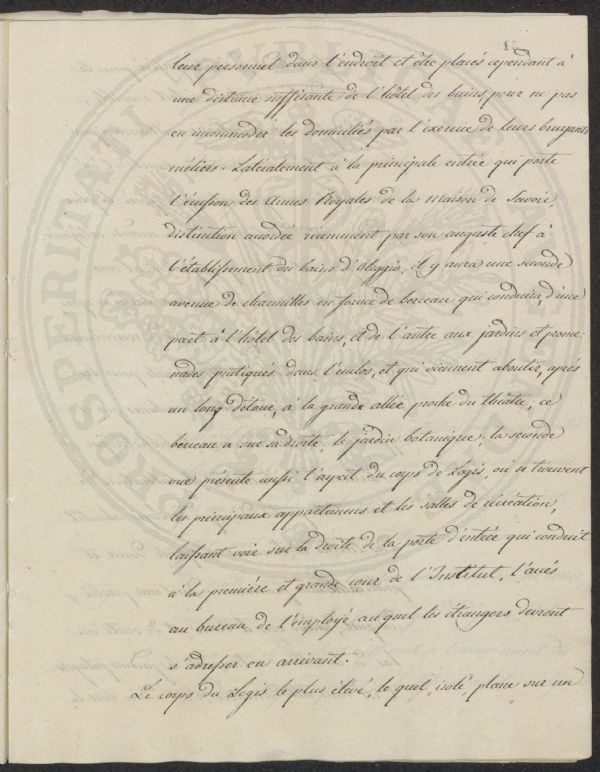 leur personnel dans l'endroit et être placés cependant à
une distance suffisante de l'hôtel des bains, pour ne pas
en incommoder les domiciliés par l'exercice de leurs bruyants
métiers. Latéralement à la principale entrée qui porte
l'écusson des Armes Royales de la Maison de Savoie,
distinction accordée récemment par son auguste chef à
l'établissement des bains d'Oleggio, il y aura une seconde
avenue de charmilles en forme de berceau qui conduira, d'une
part à l'hôtel des bains, et de l'autre aux jardins et prome-
nades pratiqués dans l'enclos, et qui viennent aboutir, après
un long détour, à la grande allée proche du théâtre; ce
berceau a sur sa droite, le jardin botanique; la seconde
vue présente aussi l'aspect du corps de Logis, où se trouvent
les principaux appartemens et les salles de récréation,
laissant voir sur la droite de la porte d'entrée qui conduit
à la première et grande cour de l'Institut, l'accès
au bureau de l'employé auquel les étrangers devront
s'adresser en arrivant.
Le corps du Logis le plus élevé, le quel, isolé, plane sur un
PROSPERITATI